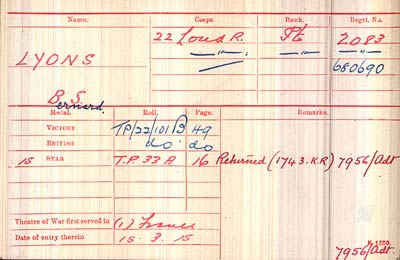 Name. Corps. Rank. Regtl. No.
22 Lond R. Pte 2083
LYONS — " — — " — 680690
B. S.
Bernard.
Medal. Roll. Page. Remarks.
VICTORY TP/22/101 B 49
BRITISH do do
15 STAR T.P. 33 A 16 Returned (1743. K.R) 7956/Adt
Theatre of War first served in (1) France
Date of entry therein 15. 3. 15
K. 1380.
7956/Adt.